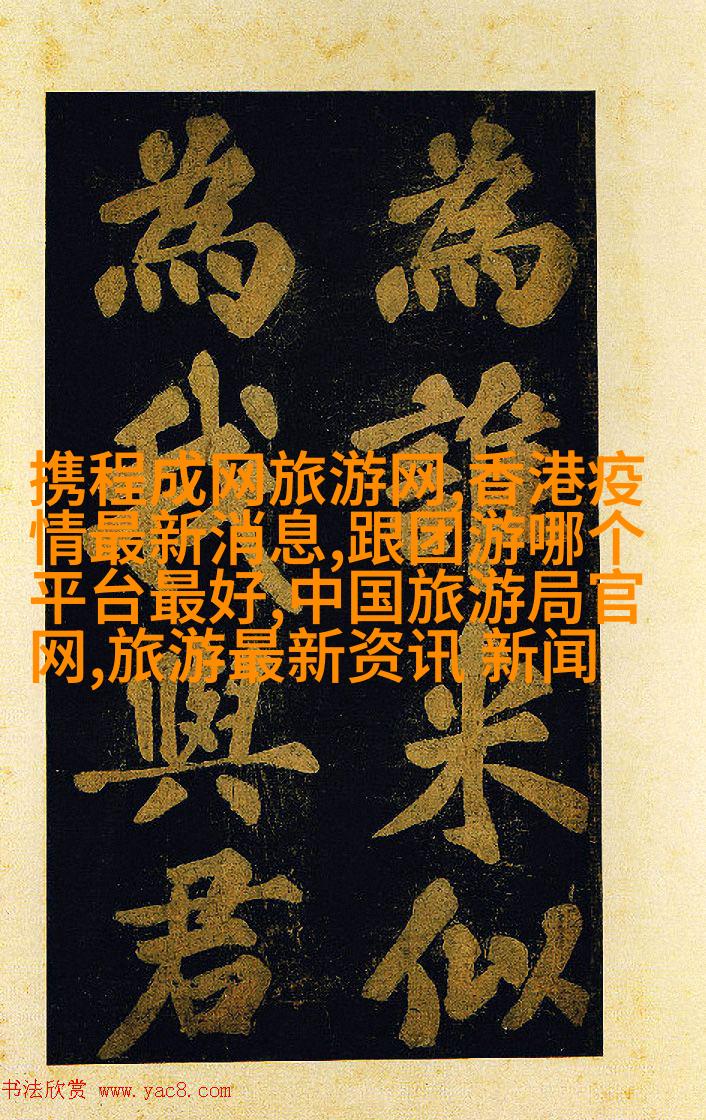 為誰米似
為我與君
携程成网旅游网,香港疫
情最新消息,跟团游哪个
平台最好,中国旅游局官
网,旅游最新资讯 新闻
书法欣赏 www.yac8.com